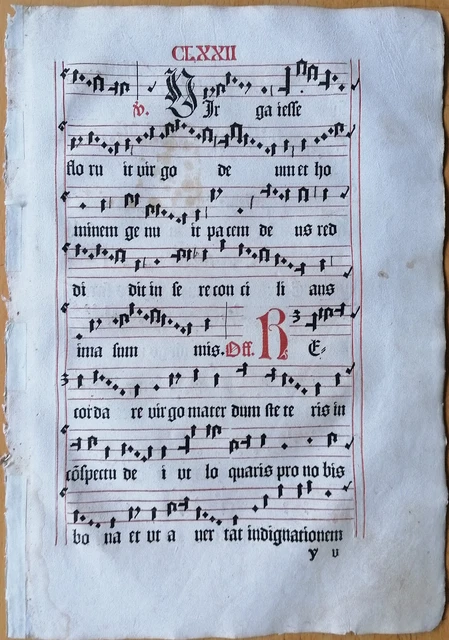 CLXXII
℣. VIr ga iesse
flo ru it vir go de um et ho
minem ge nu it pa cem de us red
di dit in se re con ci li ans
ima sum mis. Off. RE-
cor da re vir go mater dum ste te ris in
cōspectu de i ut lo quaris pro no bis
bo na et ut a ver tat indignationem
y v